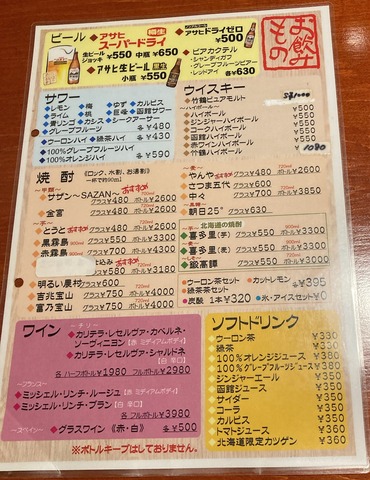 お飲みもの
ビール
アサヒ 樽生
スーパードライ
生ビール ジョッキ ¥550 中瓶 ¥650
アサヒ生ビール 黒生
小瓶 ¥550
ノンアルコール
アサヒドライゼロ
¥500
ビアカクテル
・シャンディガフ
・グレープフルーツビアー
・レッドアイ 各¥630
サワー
レモン 梅 ゆず カルピス
ライム 桃 巨峰 函館サワー
青リンゴ カシス シークアーサー
グレープフルーツ 各¥480
ウーロンハイ 緑茶ハイ 各¥430
100%グレープフルーツハイ
100%オレンジハイ 各¥590
ウイスキー
竹鶴ピュアモルト
ハイボール ¥550
ジンジャーハイボール ¥550
コークハイボール ¥550
函館ハイボール ¥550
赤ワインハイボール ¥550
竹鶴ハイボール 1080
焼酎 《ロック、水割、お湯割》
一杯で約90ml
〜甲類〜 おすすめ
サザン〜SAZAN〜 グラス¥480 ボトル¥2600
金宮 グラス¥480 ボトル¥2600
〜芋〜
とらと おすすめ グラス¥480 ボトル¥2600
黒霧島 グラス¥500
赤霧島
おすすめ ¥580 ボトル¥3180
明るい農村 グラス¥600
吉兆宝山 グラス¥750 ボトル¥4000
富乃宝山 グラス¥750 ボトル¥4000
〜麦〜
やんや おすすめ グラス¥480 ボトル¥2600
さつま五代 グラス¥600
中々 グラス¥700 ボトル¥3850
〜黒糖〜
朝日25° グラス¥630
北海道の焼酎
喜多里(芋) グラス¥500
喜多里(麦) グラス¥500
〜しそ〜
鍛高譚 グラス¥500
ウーロン茶セット ・カットレモン
緑茶茶セット 各¥395
炭酸 1本¥320 ・氷・アイスセット¥0
ワイン
〜チリ〜
カリテラ・レセルヴァ・カベルネ・
ソーヴィニヨン [赤 ミディアムボディ]
カリテラ・レセルヴァ・シャルドネ
[白 辛口]
各 ハーフボトル¥1980 フルボトル¥2980
〜フランス〜
ミッシェル・リンチ・ルージュ [赤 ミディアムボディ]
ミッシェル・リンチ・ブラン [白 辛口]
各 フルボトル¥3980
〜スペイン〜
グラスワイン 《赤・白》 各¥500
ソフトドリンク
ウーロン茶 ¥330
緑茶 ¥330
100%オレンジジュース ¥380
100%グレープフルーツジュース ¥380
ジンジャーエール ¥350
函館ジュース ¥350
サイダー ¥350
コーラ ¥350
カルピス ¥350
トマトジュース ¥360
北海道限定カツゲン ¥360
※ボトルキープはしておりません。